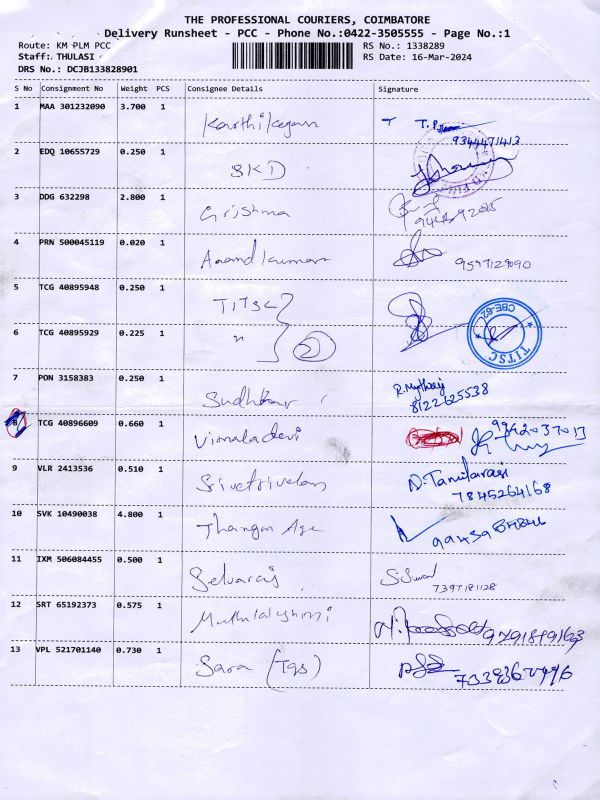 THE PROFESSIONAL COURIERS, COIMBATORE
Delivery Runsheet - PCC - Phone No.:0422-3505555 - Page No.:1
Route: KM PLM PCC RS No.: 1338289
Staff: THULASI RS Date: 16-Mar-2024
DRS No.: DCJB133828901
S No Consignment No Weight PCS Consignee Details Signature
1 MAA 301232090 3.700 1 Karthikeyan
2 EDQ 10655729 0.250 1 SKD
3 DDG 632298 2.800 1 Grishma
4 PRN 500045119 0.020 1 Anandkumar 9597129090
5 TCG 40895948 0.250 1 TITSC CBE-62
6 TCG 40895929 0.225 1 " 2 TITSC
7 PON 3158383 0.250 1 Sudhkar 8122625538
8 TCG 40896609 0.660 1 Vimaladevi
9 VLR 2413536 0.510 1 Srivetrivelan D.Tamilarasi
7845264168
10 SVK 10490038 4.800 1 Thangam
11 IXM 506084455 0.500 1 Selvaraj
7397181128
12 SRT 65192373 0.575 1
13 VPL 521701140 0.730 1 Sara (Tgs)